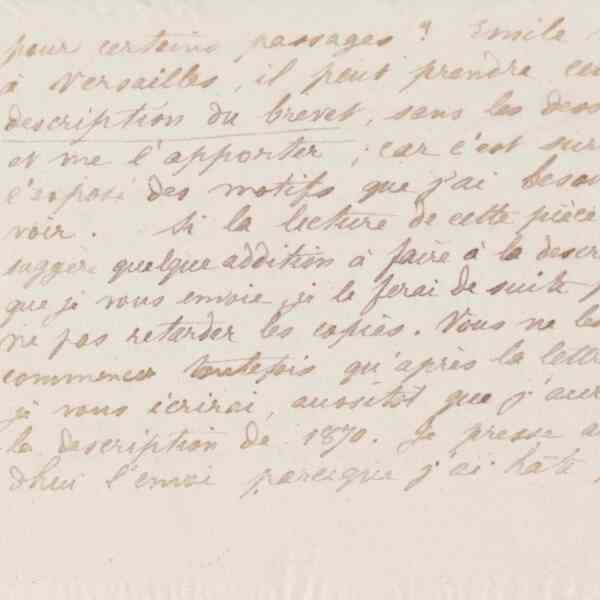 pour certains passages ? Emile
à Versailles, il peut prendre
description du brevet, sans les dess
et me l'apporter ; car c'est sur
l'exposé des motifs que j'ai beso
voir. Si la lecture de cette pièce
suggère quelque addition à faire à la descr
que je vous envoie, je le ferai de suite p
ne pas retarder les copies. Vous ne les
commencer toutefois qu'après la lettre
je vous écrirai, aussitôt que j'aur
la description de 1870. Je presse au
d'hui l'envoi parceque j'ai hâte